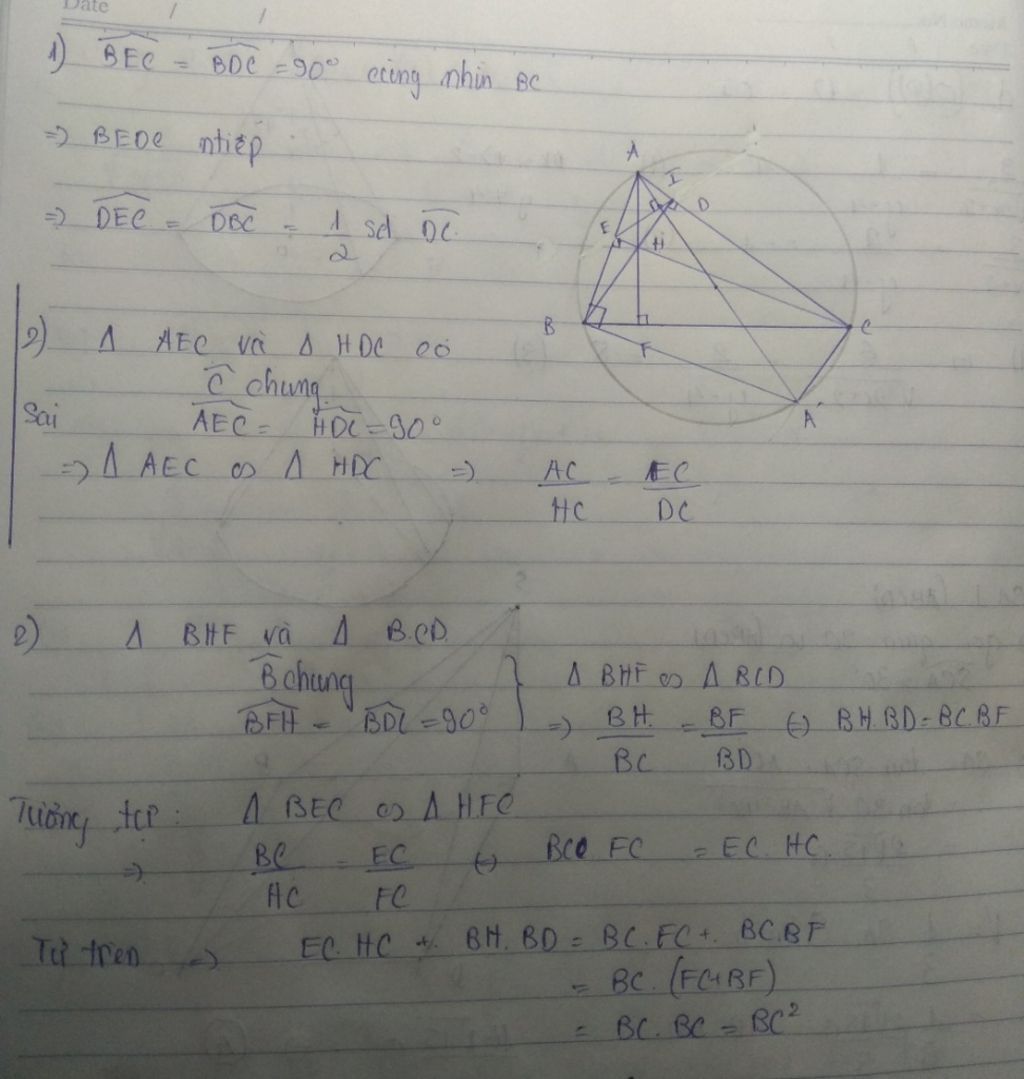 Date / /
1) BEC = BDC = 90° cùng nhìn BC
=> BEDC ntiếp
=> DEC = DBC = 1/2 sđ DC
A
I
D
E
H
B
C
F
A'
2) Δ AEC và Δ HDC có
C chung
Sai
AEC = HDC = 90°
=> Δ AEC ∽ Δ HDC => AC/HC = EC/DC
2) Δ BHF và Δ BCD
B chung
BFH = BDC = 90°
Δ BHF ∽ Δ BCD
=> BH/BC = BF/BD (-) BH.BD = BC.BF
Tương tự: Δ BEC ∽ Δ HFC
=> BC/HC = EC/FC (-) BC. FC = EC. HC.
Từ trên => EC. HC + BH. BD = BC. FC + BC.BF
= BC. (FC+BF)
= BC. BC = BC²